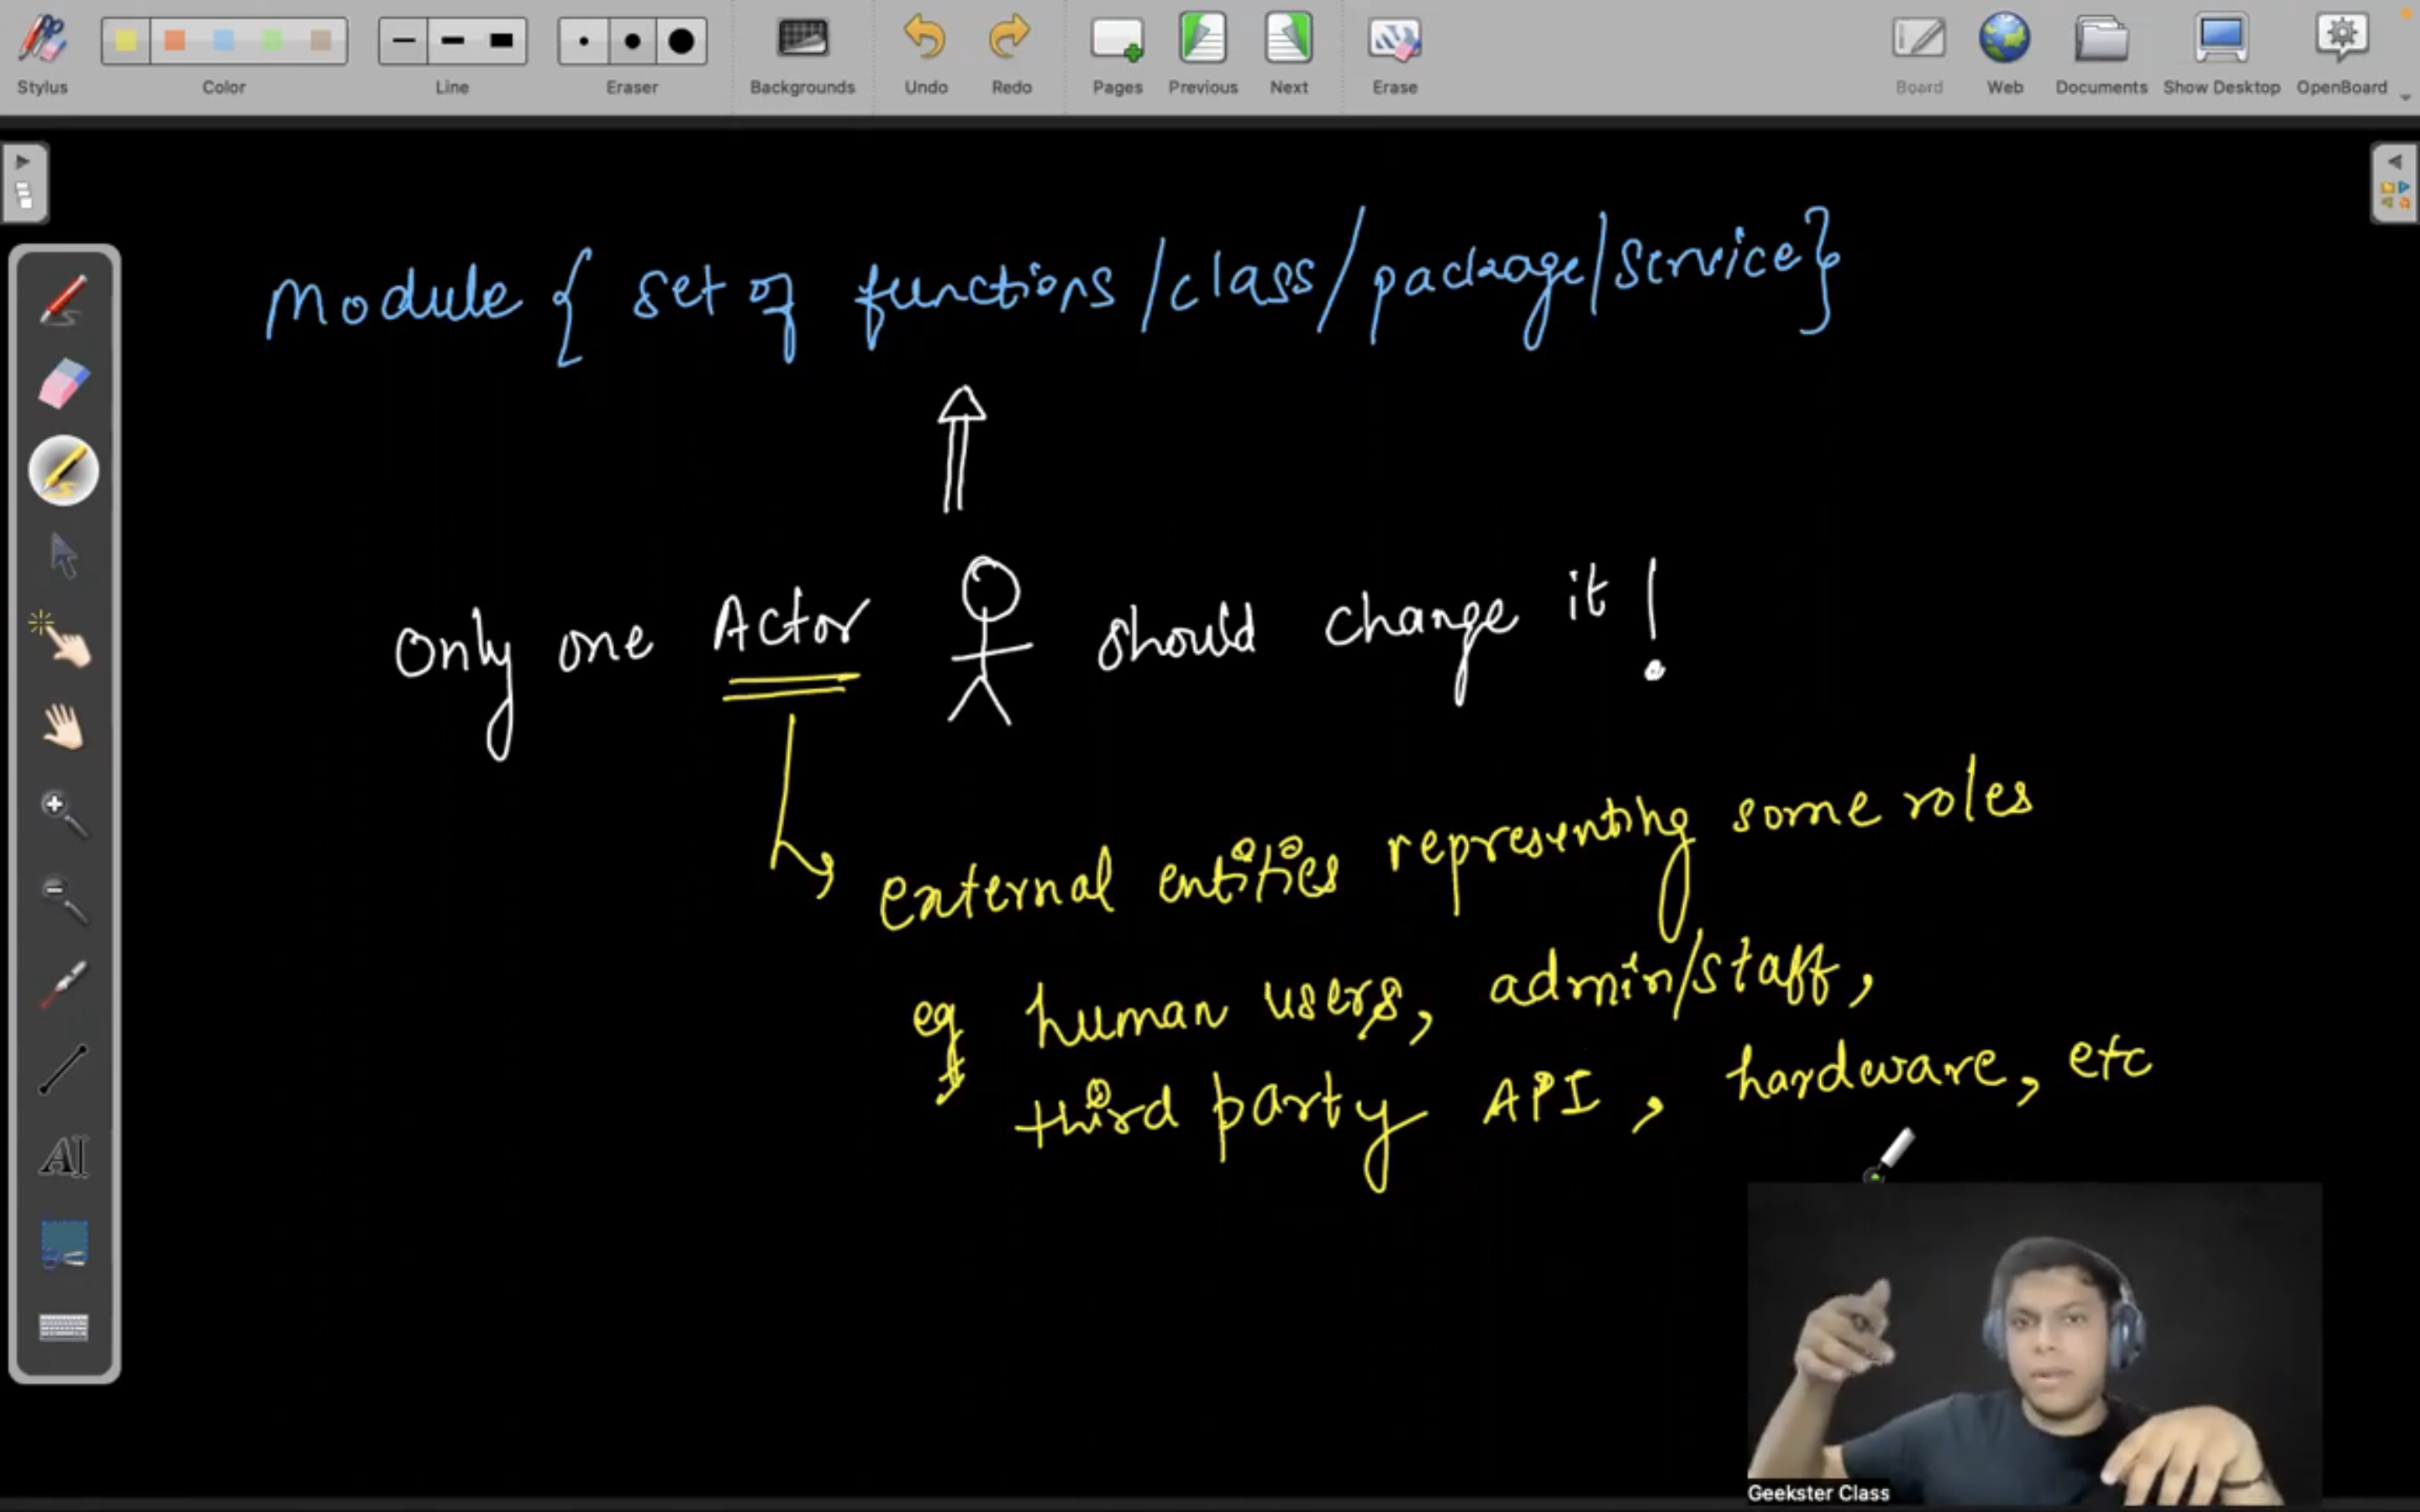 Stylus Color Line Eraser Backgrounds Undo Redo Pages Previous Next Erase Board Web Documents Show Desktop OpenBoard
Module { set of functions/class/package/service}
Only one Actor should change it!
external entities representing some roles
eg human users, admin/staff,
third party API, hardware, etc
AI
Geekster Class